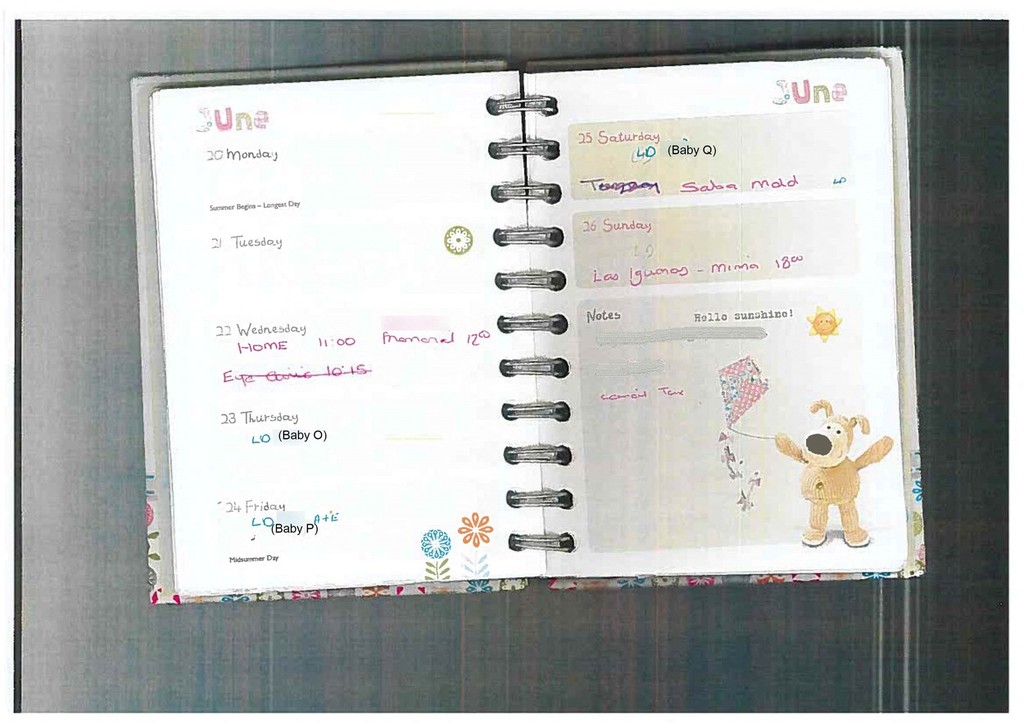 June
20 Monday
Summer Begins – Longest Day
21 Tuesday
22 Wednesday
HOME 11:00 Memorial 12⁰⁰
Eye Clinic 10:15
23 Thursday
LD (Baby O)
24 Friday
LD A+E
(Baby P)
Midsummer Day
June
25 Saturday
LD (Baby Q)
Salsa Mold LD
26 Sunday
LD
Las Iguanas - Minna 18⁰⁰
Notes Hello sunshine!
Council Tax